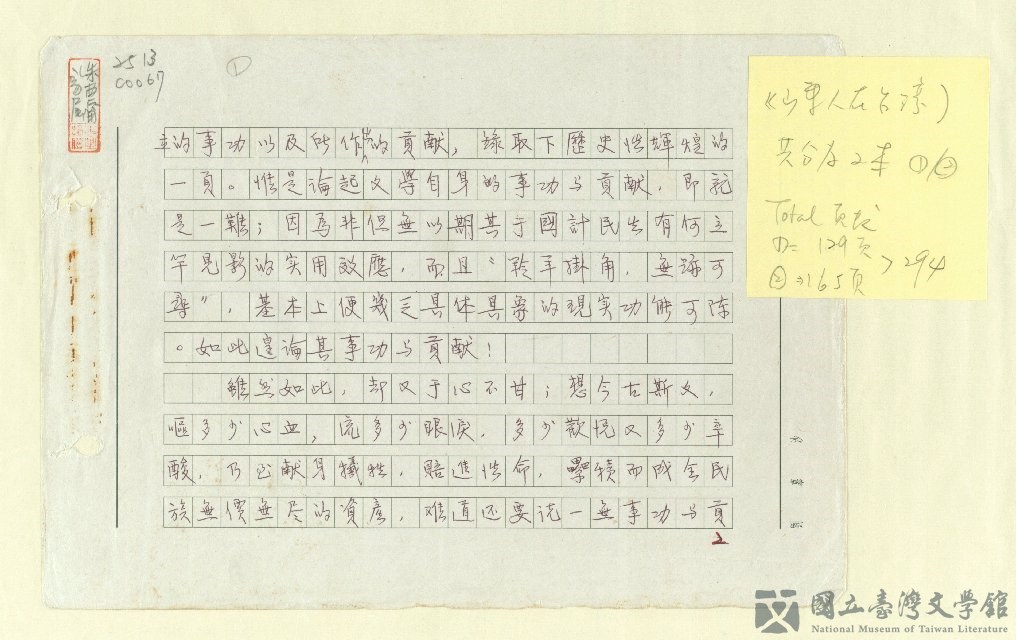 2513
00067
①
朱西甯
的事功以及所作的貢献，錄取下歷史性輝煌的
一頁。惟是論起文學自身的事功与貢献，即就
是一難；因爲非但無以期其于國計民生有何立
竿見影的实用效應，而且〝羚羊掛角，無跡可
尋〞，基本上便幾乏具体具象的現实功能可陈
。如此遑論其事功与貢献！
雖然如此，却又于心不甘；想今古斯文，
嘔多少心血，流多少眼淚，多少歎悅又多少辛
酸，乃至献身犧牲，賠進性命，纍積而成全民
族無價無尽的資產，难道还要说一無事功与貢
2
《山東人在台湾》
共分为2本 ①②
Total 页数
①= 129页
②=165页 > 294
國立臺灣文學館
National Museum of Taiwan Literature